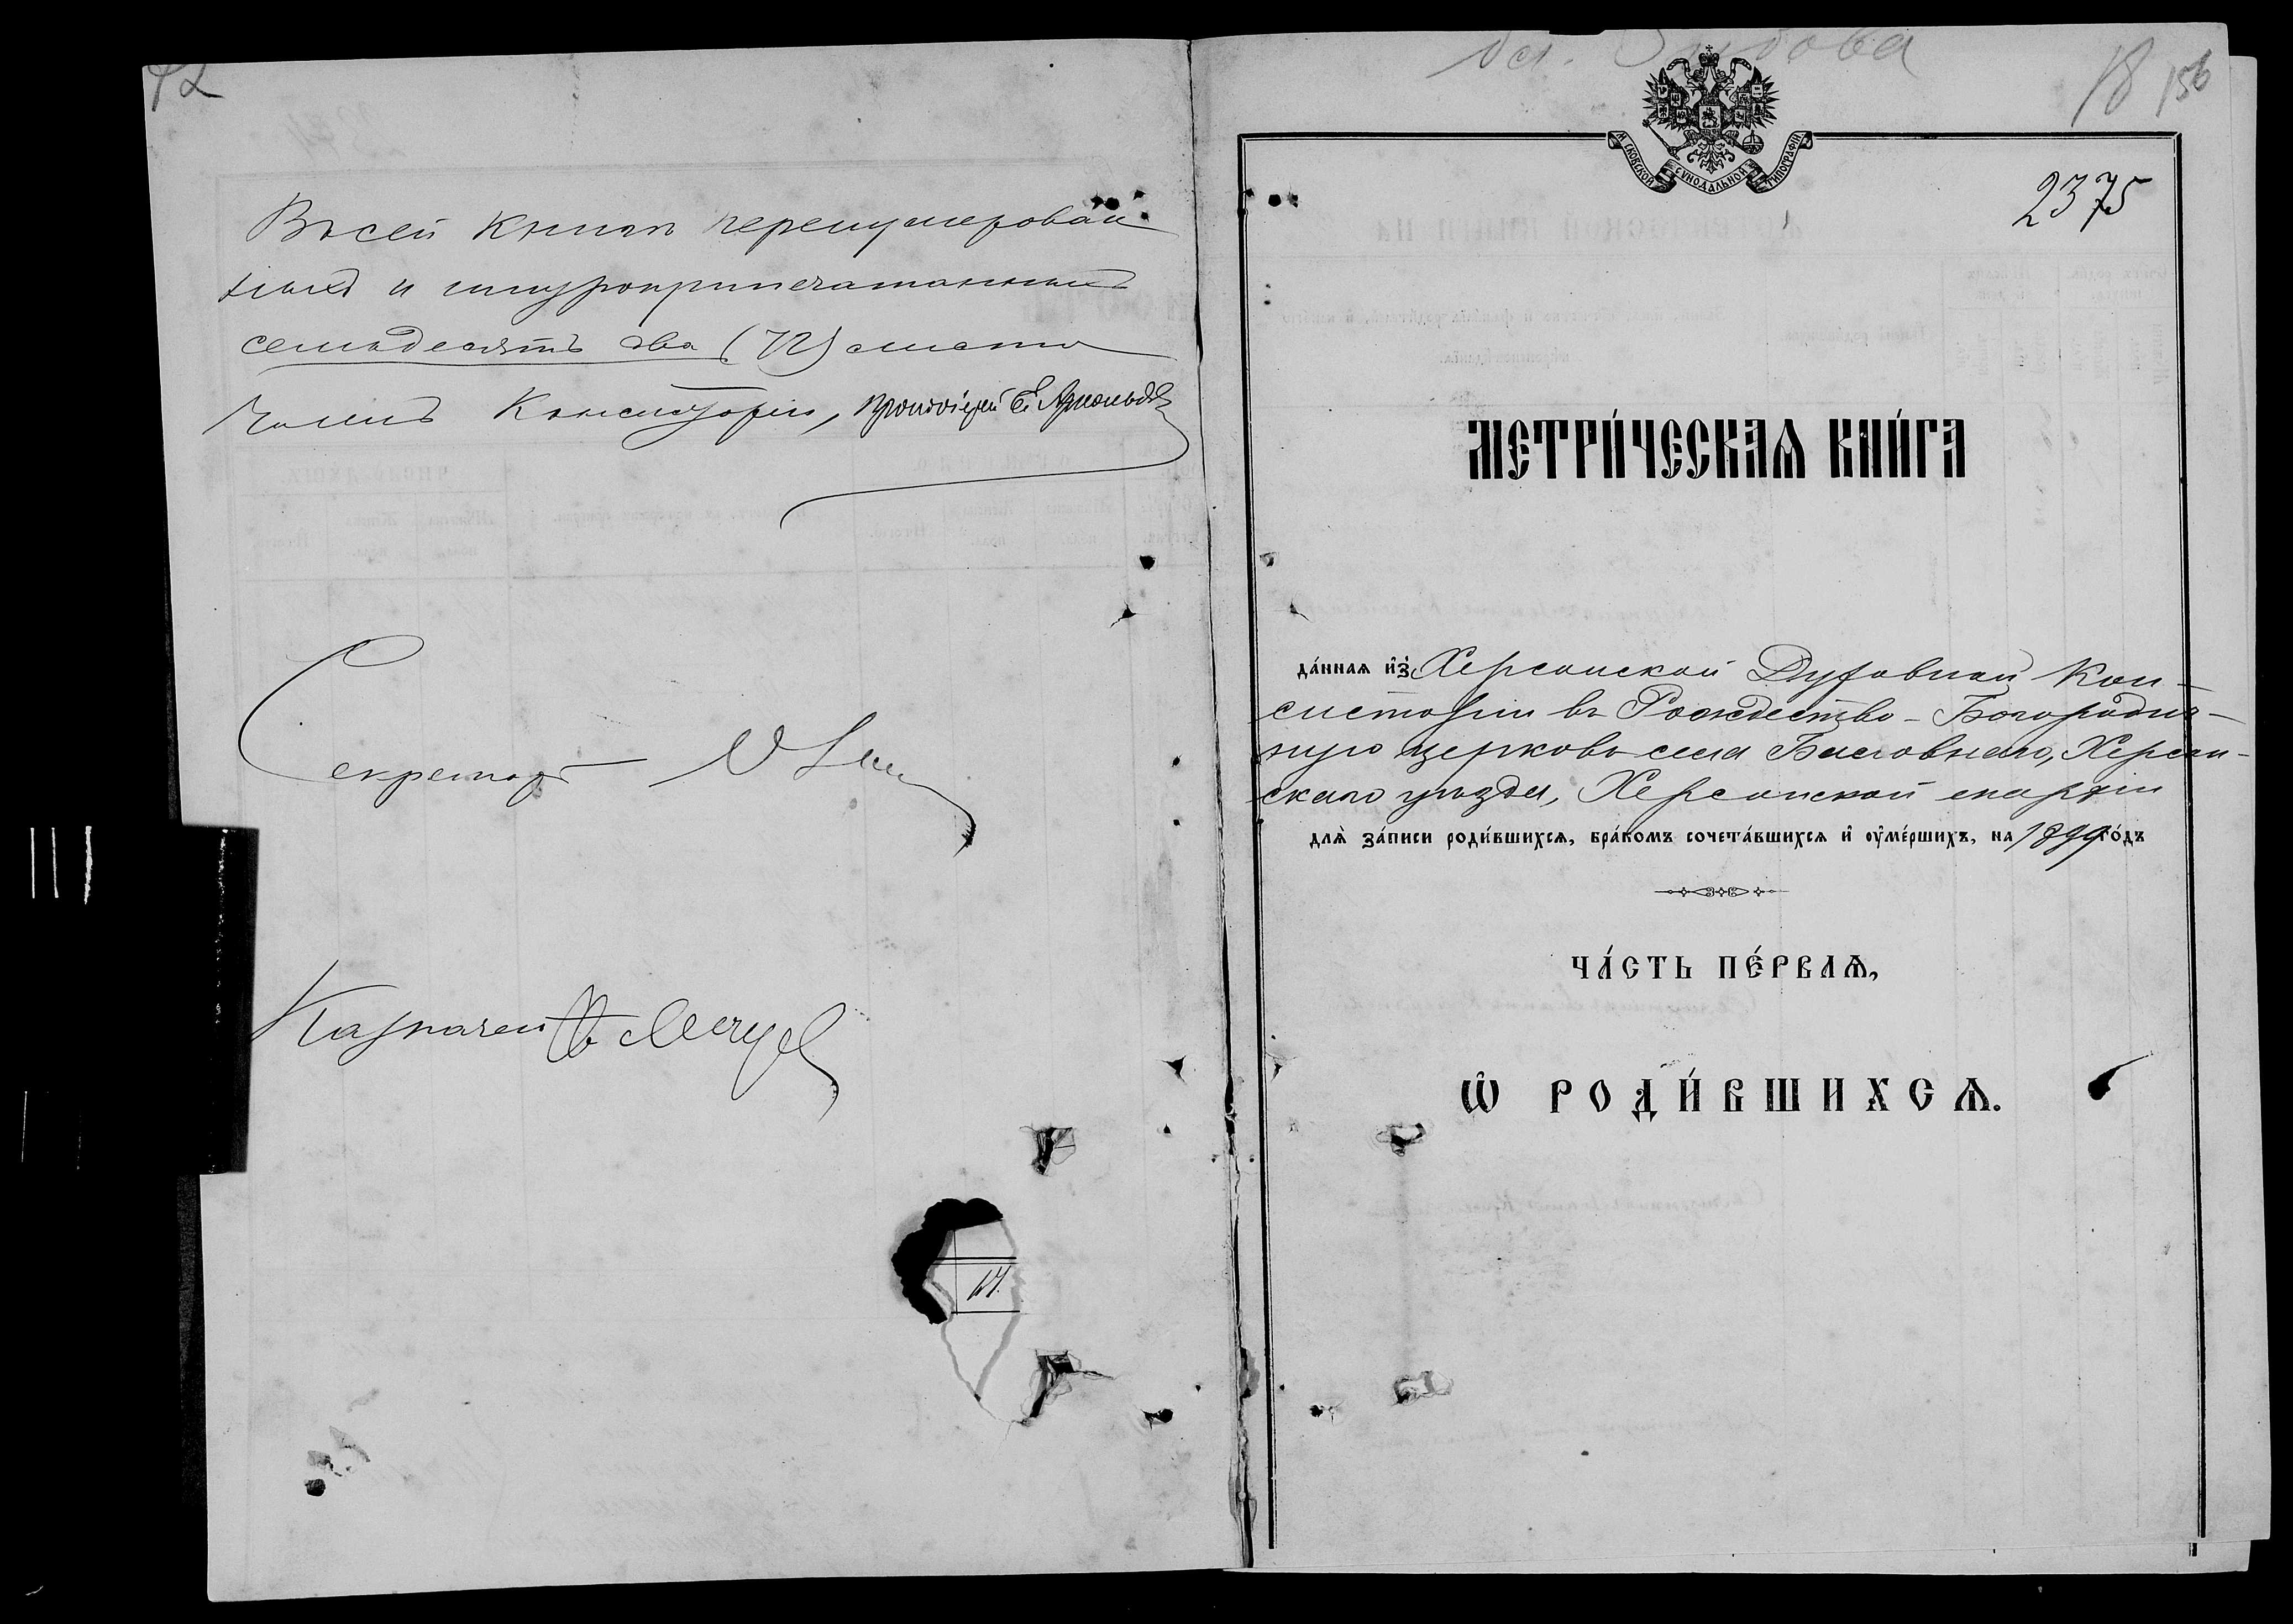 72
Въ сей книгѣ перенумерован
ныхъ и шнуроприпечатанныхъ
семьдесятъ два (72) листа
Членъ Консисторіи, Протоіерей Е.
Секретарь
Казначей
14.
18 156
МОСКОВСКОЙ СѴНОДАЛЬНОЙ ТИПОГРАФІИ
2375
МЕТРИ́ЧЕСКАѦ КНИ́ГА
да́нная и҆з̾ Херсонской Духовной Кон-
систоріи въ Рождество-Богородич-
ную церковь села Висовнаго, Херсон-
скаго уѣзда, Херсонской епархіи
длѧ̀ за́писи роди́вшихсѧ, бра́комъ сочета́вшихсѧ и҆ ᲂу҆ме́ршихъ, на 1899 го́дъ
ЧА́СТЬ ПЕ́РВАѦ,
Ѽ РОДИ́ВШИХСѦ.